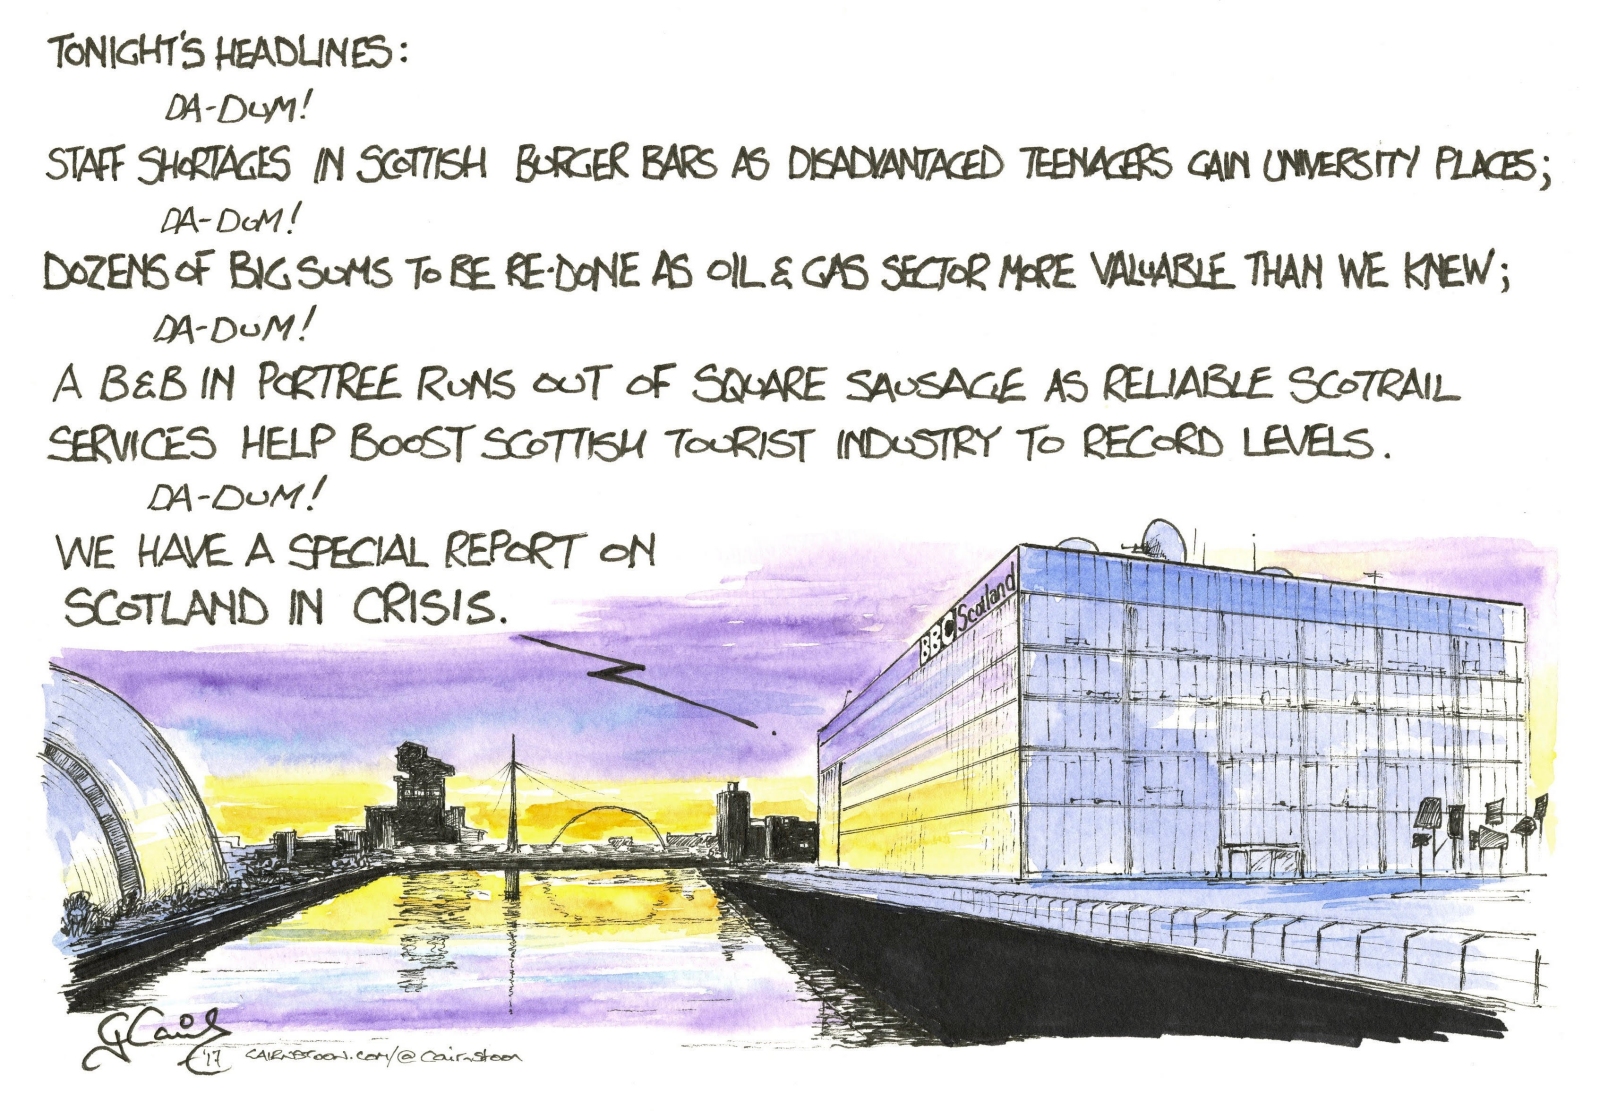 TONIGHT'S HEADLINES:
DA-DUM!
STAFF SHORTAGES IN SCOTTISH BURGER BARS AS DISADVANTAGED TEENAGERS GAIN UNIVERSITY PLACES;
DA-DUM!
DOZENS OF BIG SUMS TO BE RE-DONE AS OIL & GAS SECTOR MORE VALUABLE THAN WE KNEW;
DA-DUM!
A B&B IN PORTREE RUNS OUT OF SQUARE SAUSAGE AS RELIABLE SCOTRAIL
SERVICES HELP BOOST SCOTTISH TOURIST INDUSTRY TO RECORD LEVELS.
DA-DUM!
WE HAVE A SPECIAL REPORT ON
SCOTLAND IN CRISIS.
BBC Scotland
GCairns
'17 CAIRNSTOON.COM/@Cairnstoon